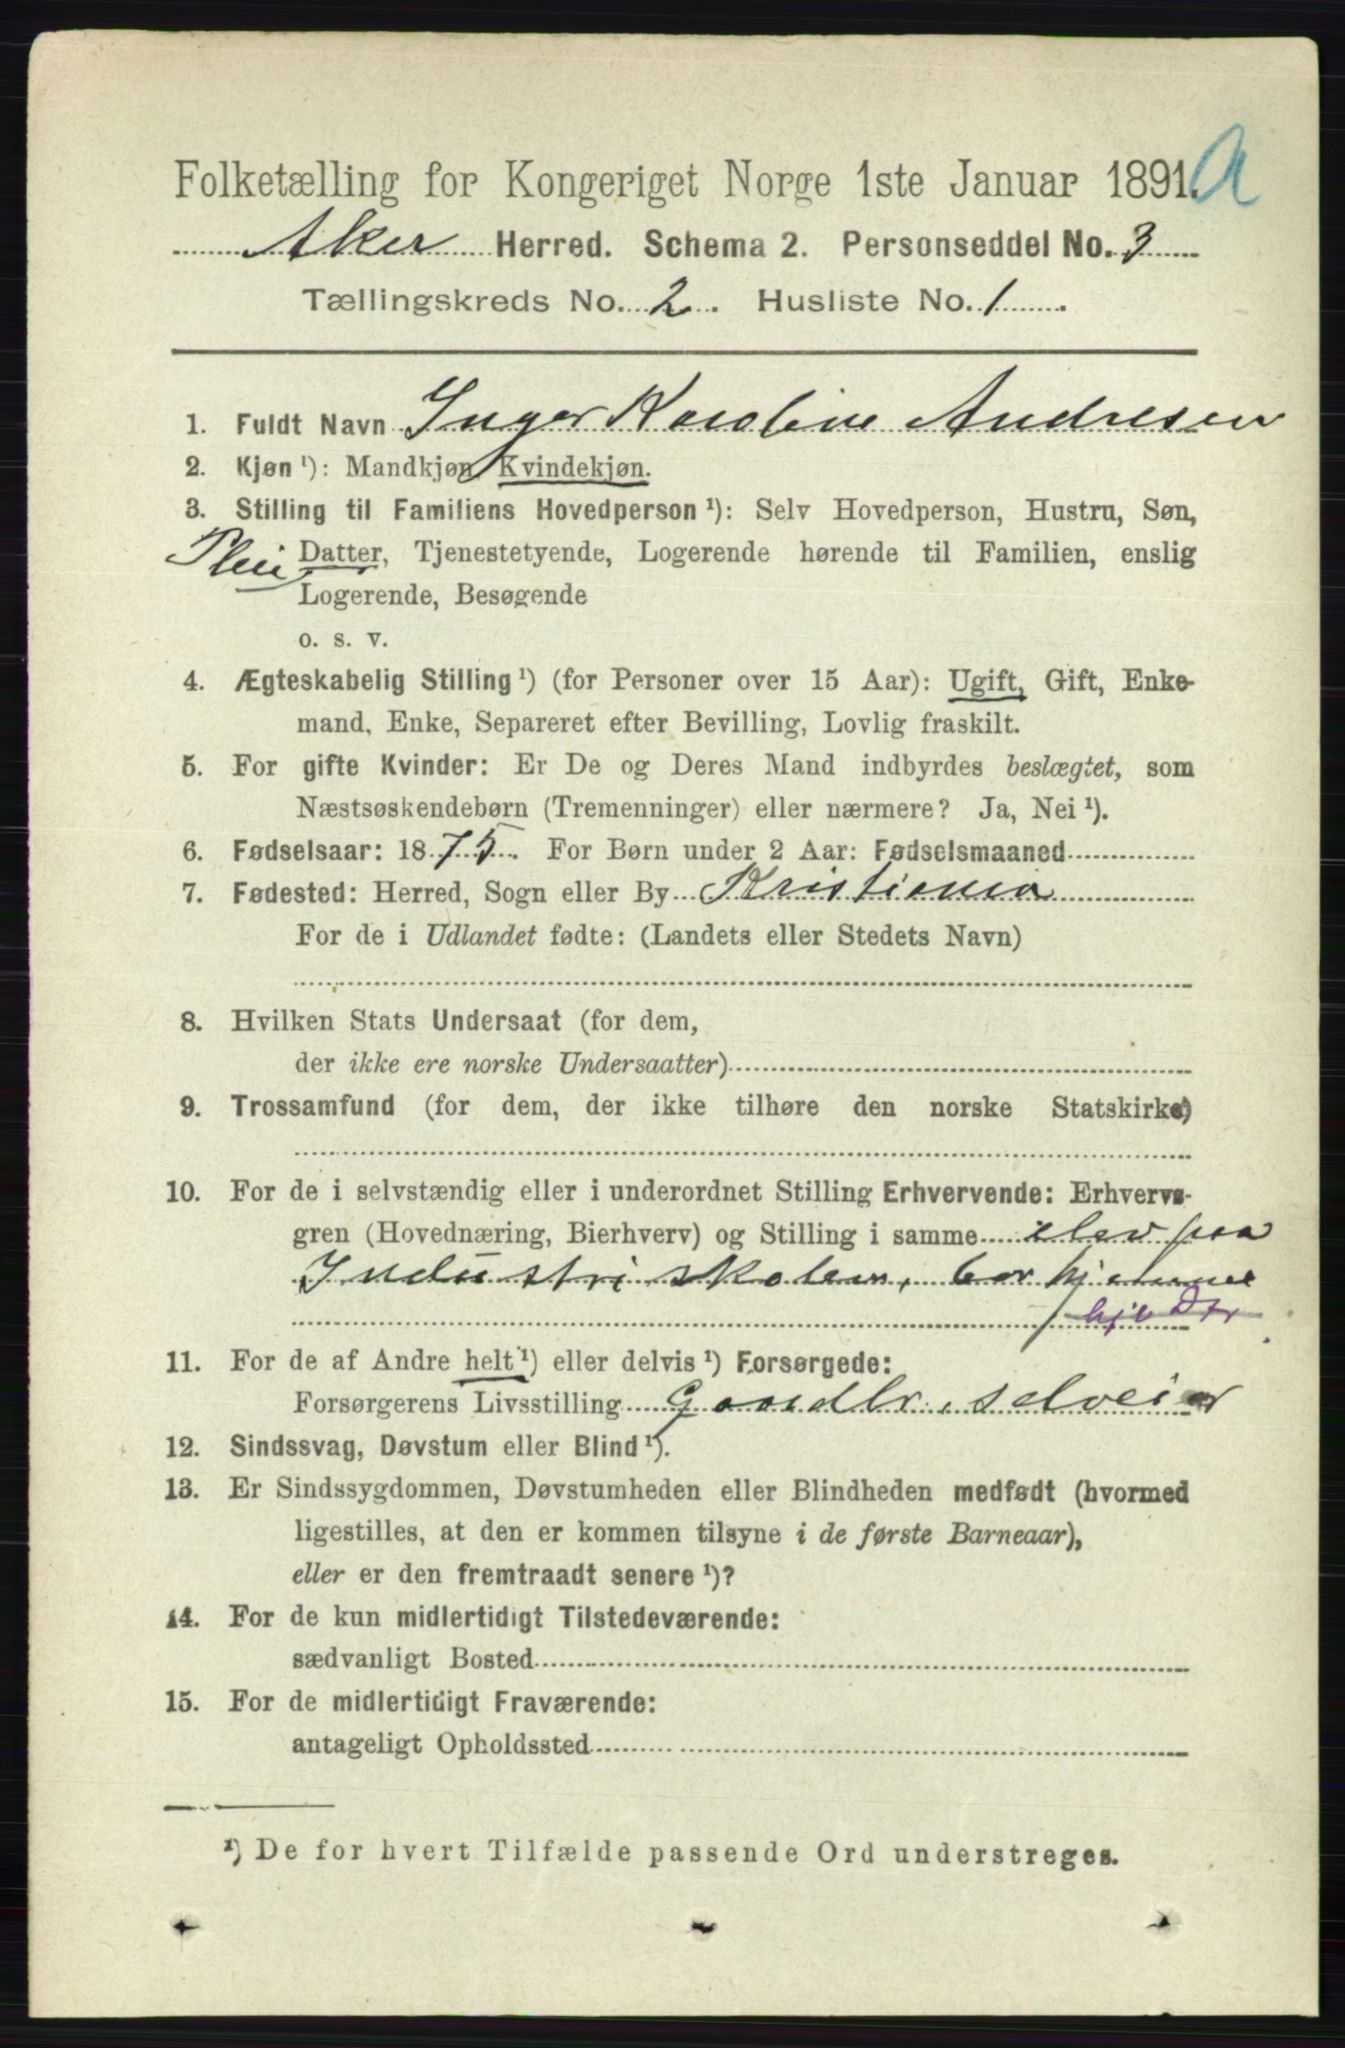 Folketælling for Kongeriget Norge 1ste Januar 1891. A
Aker Herred. Schema 2. Personseddel No. 3
Tællingskreds No. 2. Husliste No. 1.
1. Fuldt Navn Inger Karoline Andresen
2. Kjøn ¹): Mandkjøn, Kvindekjøn.
3. Stilling til Familiens Hovedperson ¹): Selv Hovedperson, Hustru, Søn,
Plei Datter, Tjenestetyende, Logerende hørende til Familien, enslig
Logerende, Besøgende
o. s. v.
4. Ægteskabelig Stilling ¹) (for Personer over 15 Aar): Ugift, Gift, Enke-
mand, Enke, Separeret efter Bevilling, Lovlig fraskilt.
5. For gifte Kvinder: Er De og Deres Mand indbyrdes beslægtet, som
Næstsøskendebørn (Tremenninger) eller nærmere? Ja, Nei ¹).
6. Fødselsaar: 1875. For Børn under 2 Aar: Fødselsmaaned
7. Fødested: Herred, Sogn eller By Kristiania
For de i Udlandet fødte: (Landets eller Stedets Navn)
8. Hvilken Stats Undersaat (for dem,
der ikke ere norske Undersaatter)
9. Trossamfund (for dem, der ikke tilhøre den norske Statskirke)
10. For de i selvstændig eller i underordnet Stilling Erhvervende: Erhvervs-
gren (Hovednæring, Bierhverv) og Stilling i samme elev paa
Industriskolen, bor hjemme
hjv Dtr
11. For de af Andre helt ¹) eller delvis ¹) Forsørgede:
Forsørgerens Livsstilling Gaardbr., selveier
12. Sindssvag, Døvstum eller Blind ¹).
13. Er Sindssygdommen, Døvstumheden eller Blindheden medfødt (hvormed
ligestilles, at den er kommen tilsyne i de første Barneaar),
eller er den fremtraadt senere ¹)?
14. For de kun midlertidigt Tilstedeværende:
sædvanligt Bosted
15. For de midlertidigt Fraværende:
antageligt Opholdssted
¹) De for hvert Tilfælde passende Ord understreges.